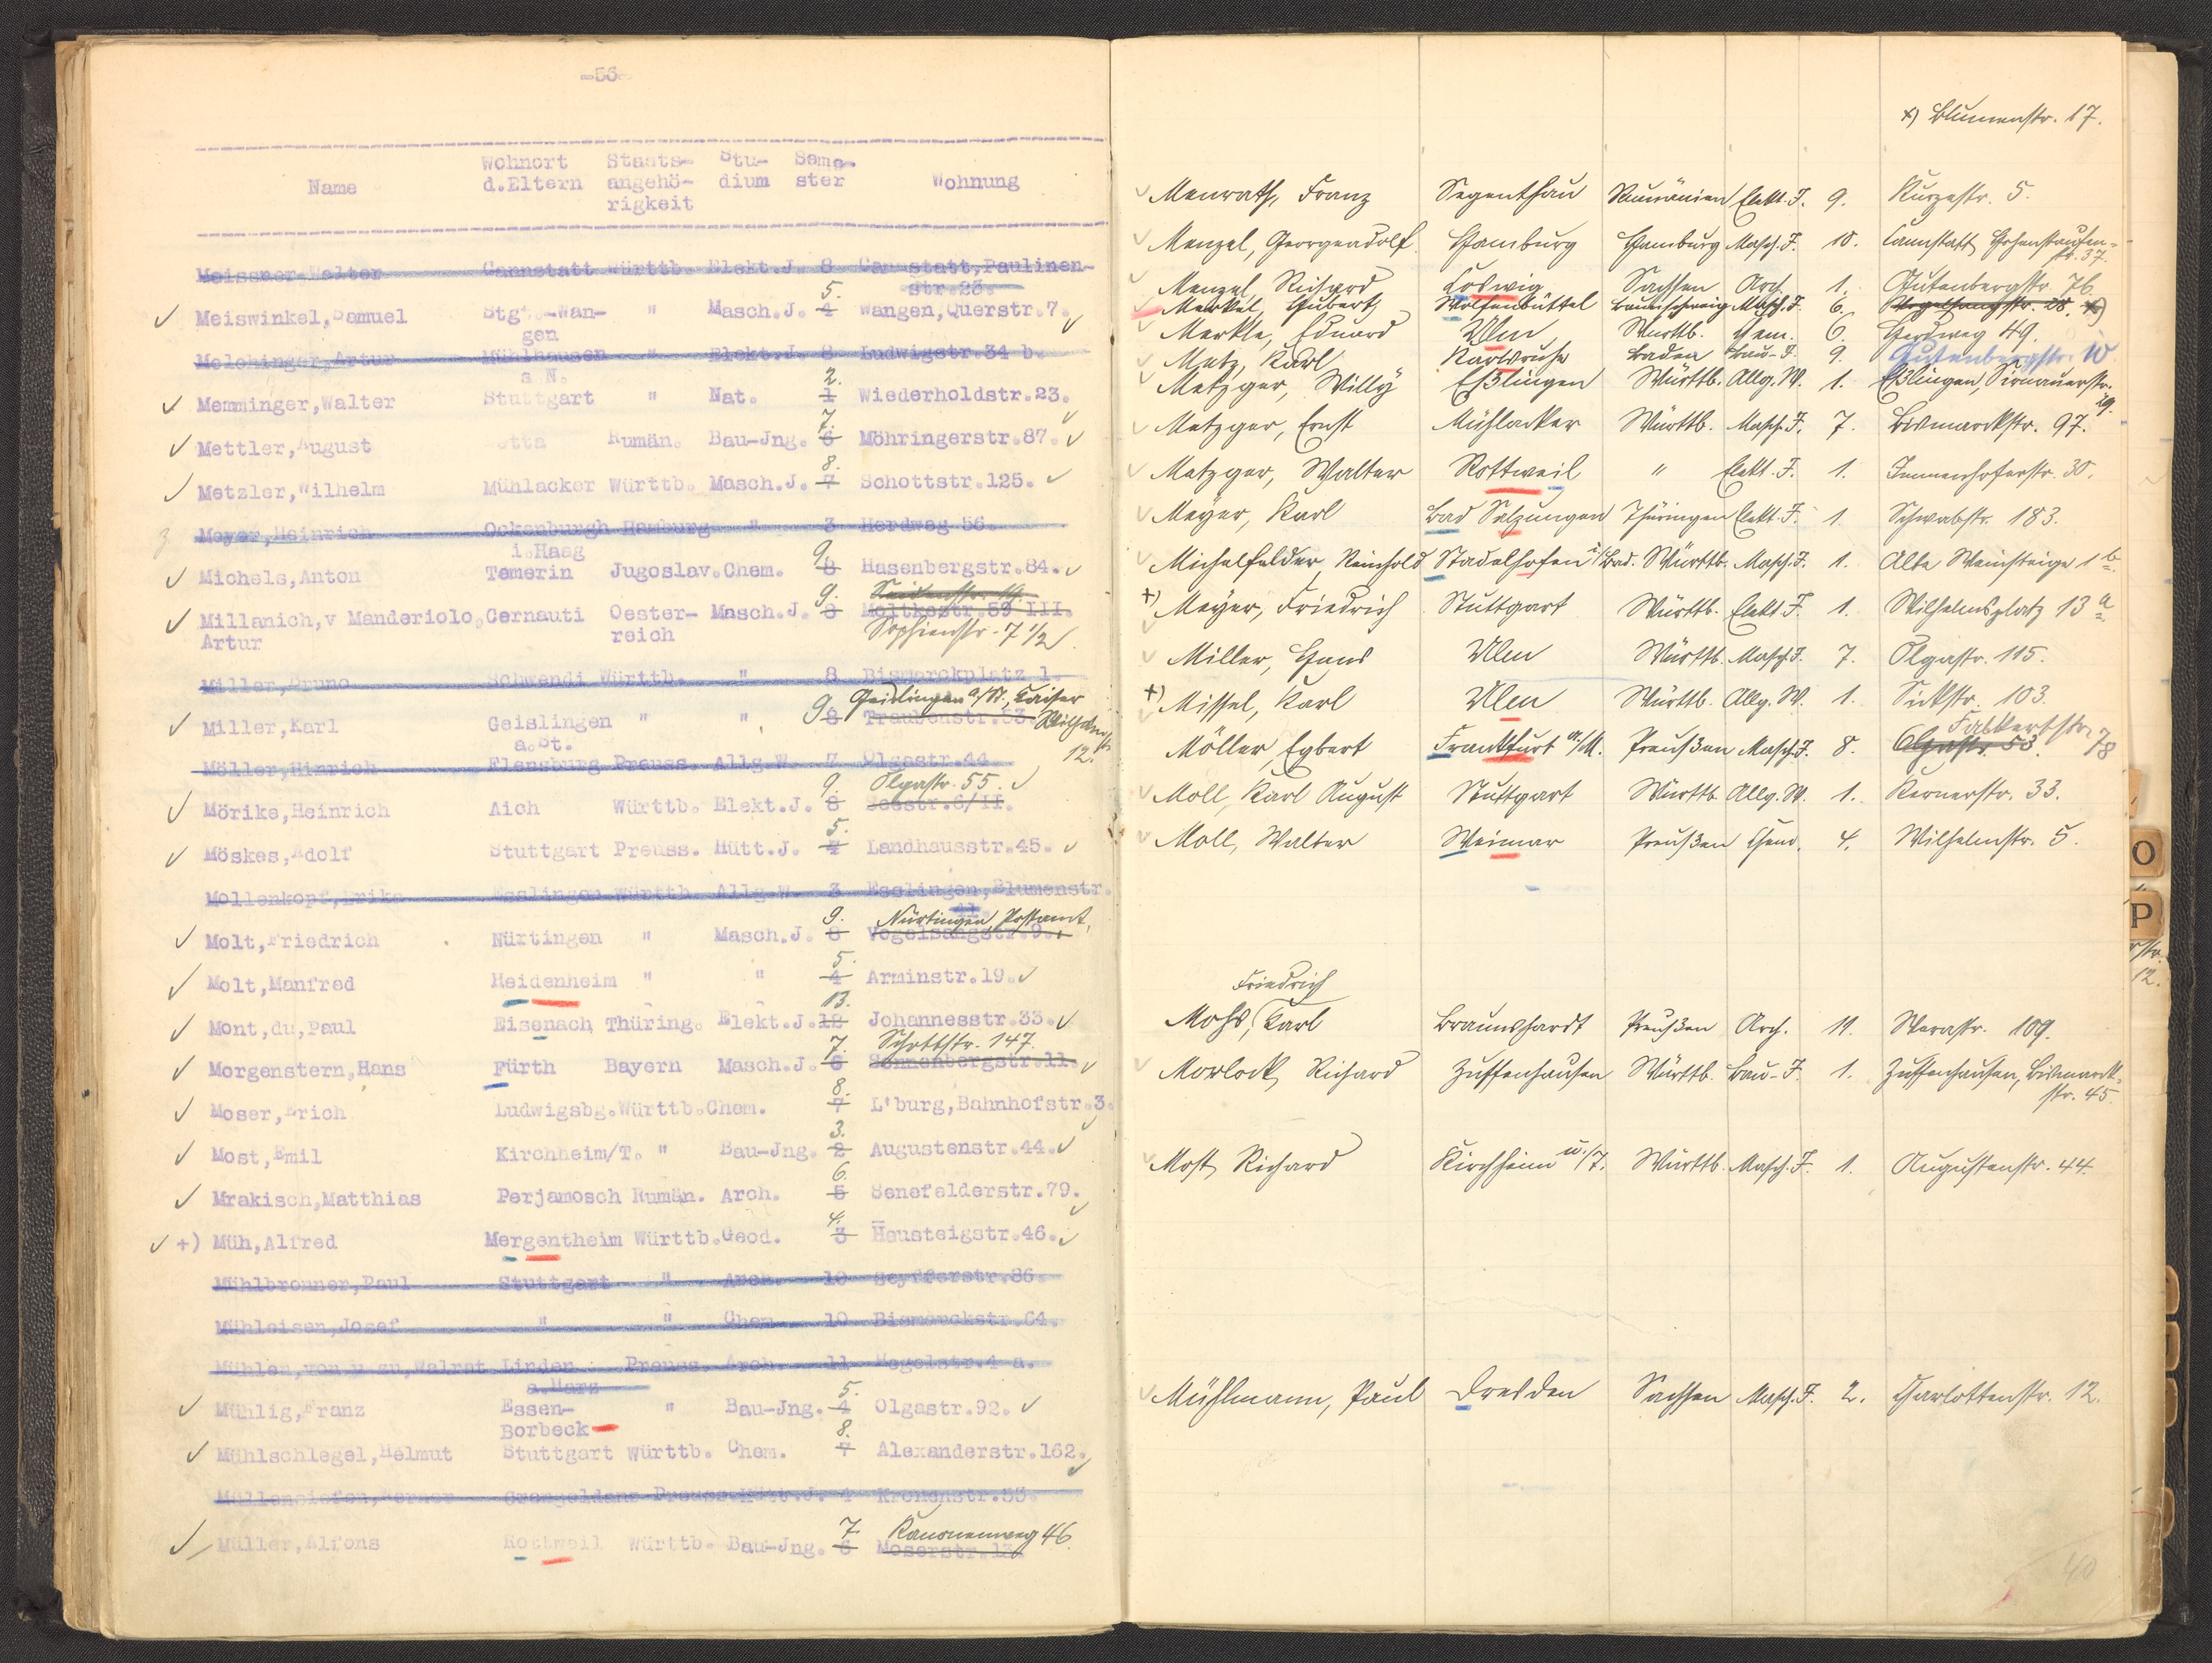 -56-
Wohnort Staats- Stu- Seme-
Name d.Eltern angehö- dium ster Wohnung
rigkeit
Meissner Walter Cannstatt Württb. Elekt.J. 8 Cannstatt,Paulinen-
str.23.
5.
Meiswinkel,Samuel Stgt.-Wan- " Masch.J. 4 Wangen,Querstr.7.
gen
Melchinger,Artur Mühlhausen " Elekt.J. 8 Ludwigstr.34 b.
a.N. 2.
Memminger,Walter Stuttgart " Nat. 1 Wiederholdstr.23.
7.
Mettler,August Rumän. Bau-Jng. 6 Möhringerstr.87.
8.
Metzler,Wilhelm Mühlacker Württb. Masch.J. 7 Schottstr.125.
Meyer,Heinrich Ockenburgh Hamburg " 3 Herdweg 56.
i.Haag 9.
Michels,Anton Temerin Jugoslav.Chem. 8 Hasenbergstr.84.
9.
Millanich,v Manderiolo,Cernauti Oester- Masch.J. 8 Moltkestr.59 III.
Artur reich Sophienstr. 7 1/2
Miller,Bruno Schwendi Württb. " 8 Bismarckplatz 1.
Geislingen a/St., Kaiser
Miller,Karl Geislingen " " 9 8 Traubenstr.53 Wilhelmstr.
a.St. 12.
Möller,Hinrich Flensburg Preuss. Allg.W. 7 Olgastr.44
9. Olgastr. 55.
Mörike,Heinrich Aich Württb. Elekt.J. 8 Seestr.6/II.
5.
Möskes,Adolf Stuttgart Preuss. Hütt.J. 4 Landhausstr.45.
Mollenkopf,Erika Esslingen Württb. Allg.W. 3 Esslingen,Blumenstr.
11.
9. Nürtingen, Postamt.
Molt,Friedrich Nürtingen " Masch.J. 8 Vogelsangstr.9.
5.
Molt,Manfred Heidenheim " " 4 Arminstr.19.
13.
Mont,du,Paul Eisenach Thüring. Elekt.J.12 Johannesstr.33.
7. Schottstr. 147.
Morgenstern,Hans Fürth Bayern Masch.J. 6 Sonnenbergstr.11.
8.
Moser,Erich Ludwigsbg.Württb.Chem. 7 L'burg,Bahnhofstr.3.
3.
Most,Emil Kirchheim/T. " Bau-Jng. 2 Augustenstr.44.
6.
Mrakisch,Matthias Perjamosch Rumän. Arch. 5 Senefelderstr.79.
4.
+) Müh,Alfred Mergentheim Württb.Geod. 3 Heusteigstr.46.
Mühlbronner,Paul Stuttgart " Arch. 10 Seyfferstr.86.
Mühleisen,Josef " " Chem. 10 Bismarckstr.64.
Mühlen,von u.zu,Walrat Linden Preuss. Arch. 11 Hegelstr.4 a.
a.Harz
5.
Mühlig,Franz Essen- " Bau-Jng. 4 Olgastr.92.
Borbeck 8.
Mühlschlegel,Helmut Stuttgart Württb. Chem. 7 Alexanderstr.162.
Müllensiefen,Werner Preuss Hütt.J. 4 Kronenstr.53.
7. Kanonenweg 46.
Müller,Alfons Rottweil Württb. Bau-Jng. 6 Moserstr.13.
x) Blumenstr. 17.
Menrath, Franz Segenthau Rumänien Elekt.J. 9. Kurzestr. 5.
Menzel, Georgeadolf Hamburg Hamburg Masch.J. 10. Cannstatt, Hohenstaufen-
str. 37.
Menzel, Richard Coswig Sachsen Arch. 1. Gutenbergstr. 76
Merkel, Hubert Wolfenbüttel Braunschweig Masch.J. 6. Vogelsangstr. 28. x)
Merkle, Eduard Ulm Württb. Chem. 6. Herdweg 49.
Metz, Karl Karlsruhe Baden Bau-J. 9. Gutenbergstr. 10
Metzger, Willy Eßlingen Württb. Allg.W. 1. Eßlingen, Sirnauerstr.
29.
Metzger, Ernst Mühlacker Württb. Masch.J. 7. Bismarckstr. 97.
Metzger, Walter Rottweil " Elekt.J. 1. Immenhoferstr. 30.
Meyer, Karl Bad Salzungen Thüringen Elekt.J. 1. Schwabstr. 183.
Michelfelder, Reinhold Stadelhofen i/Bad. Württb. Masch.J. 1. Alte Weinsteige 1 b.
+) Meyer, Friedrich Stuttgart Württb. Elekt.J. 1. Wilhelmsplatz 13 a.
Miller, Hans Ulm Württb. Masch.J. 7. Olgastr. 115.
+) Missel, Karl Ulm Württb. Allg.W. 1. Sickstr. 103.
Falkertstr. 78
Möller, Egbert Frankfurt a./M. Preußen Masch.J. 8. Olgastr. 53.
Moll, Karl August Stuttgart Württb. Allg.W. 1. Kernerstr. 33.
Moll, Walter Weimar Preußen Chem. 4. Wilhelmstr. 5.
Friedrich
Mohs, Karl Braunshardt Preußen Arch. 11. Werastr. 109.
Morlock, Richard Zuffenhausen Württb. Bau-J. 1. Zuffenhausen, Bismarck-
str. 45.
Most, Richard Kirchheim u./T. Württb. Masch.J. 1. Augustenstr. 44.
Mühlmann, Paul Dresden Sachsen Masch.J. 2. Charlottenstr. 12.
40
O
P
12.